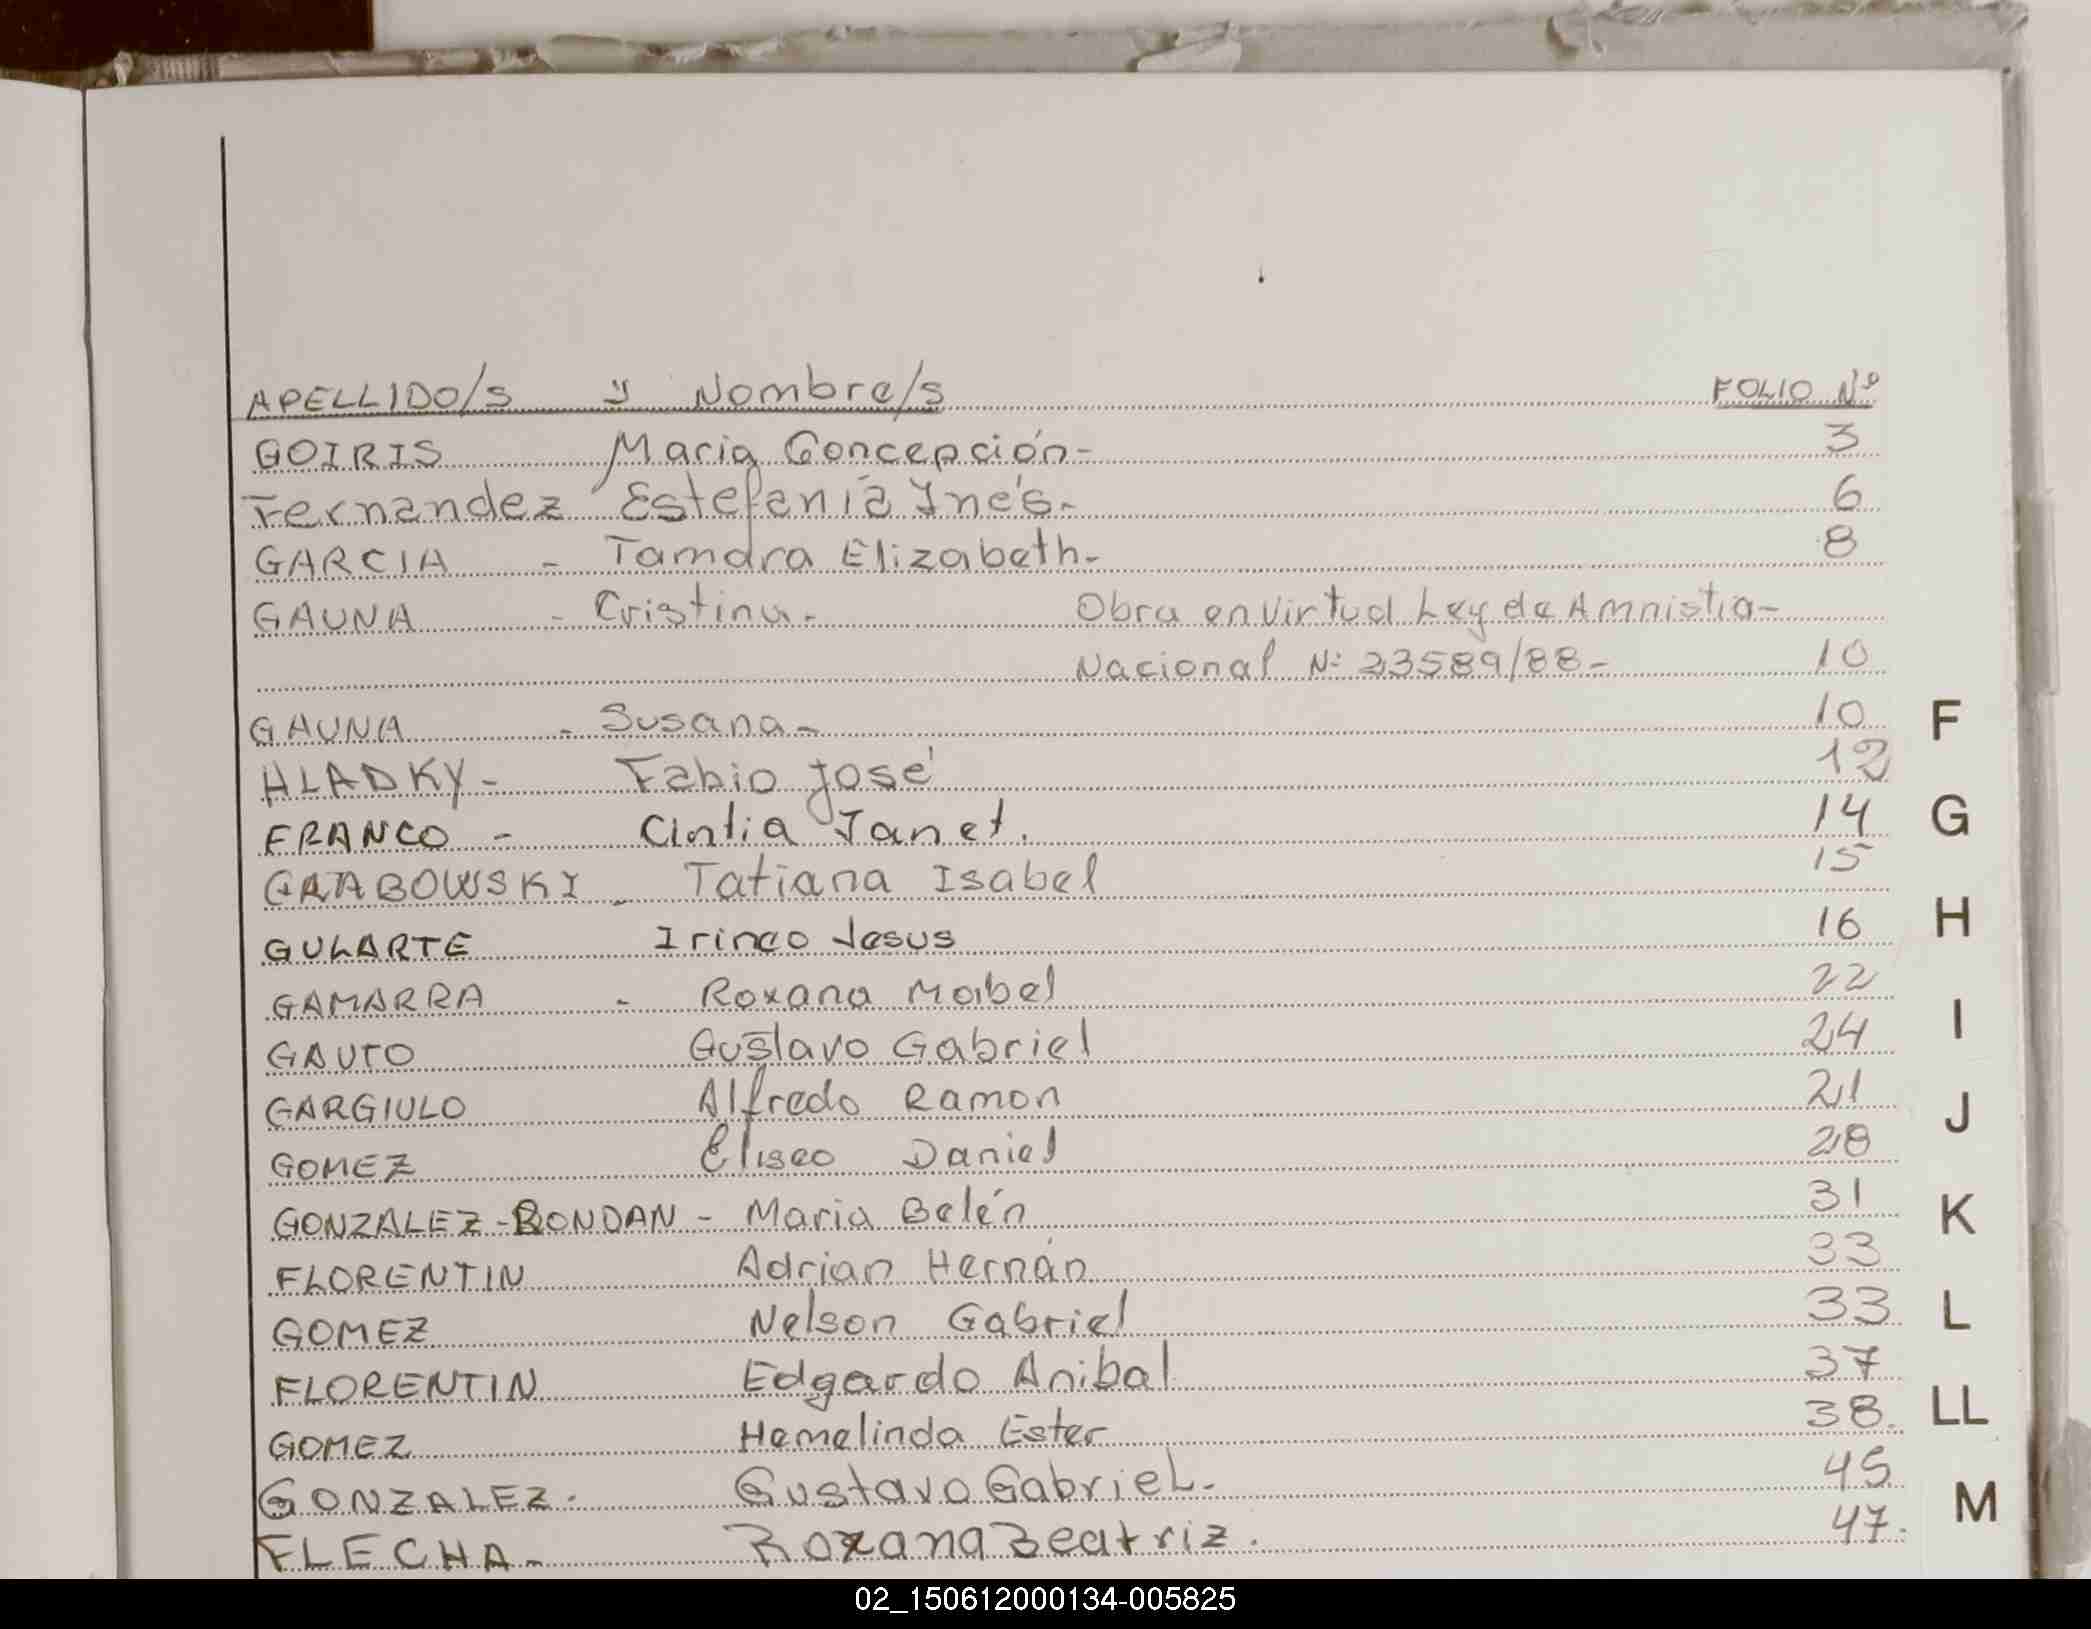 APELLIDO/S y Nombre/s FOLIO Nº
GOIRIS Maria Concepción- 3
Fernandez Estefanía Inés.- 6
GARCIA - Tamara Elizabeth- 8
GAUNA - Cristina.- Obra en virtud Ley de Amnistia-
Nacional N: 23589/88- 10
GAUNA - Susana- 10
HLADKY- Fabio José 12
FRANCO - Cintia Janet. 14
GRABOWSKI - Tatiana Isabel 15
GULARTE Irineo Jesus 16
GAMARRA - Roxana Mabel 22
GAUTO Gustavo Gabriel 24
GARGIULO Alfredo Ramon 21
GOMEZ Eliseo Daniel 28
GONZALEZ-RONDAN - Maria Belén 31
FLORENTIN Adrian Hernán 33
GOMEZ Nelson Gabriel 33
FLORENTIN Edgardo Anibal 37
GOMEZ Hemelinda Ester 38.
GONZALEZ. Gustavo Gabriel- 45
FLECHA- Roxana Beatriz. 47.
F
G
H
I
J
K
L
LL
M
02_150612000134-005825